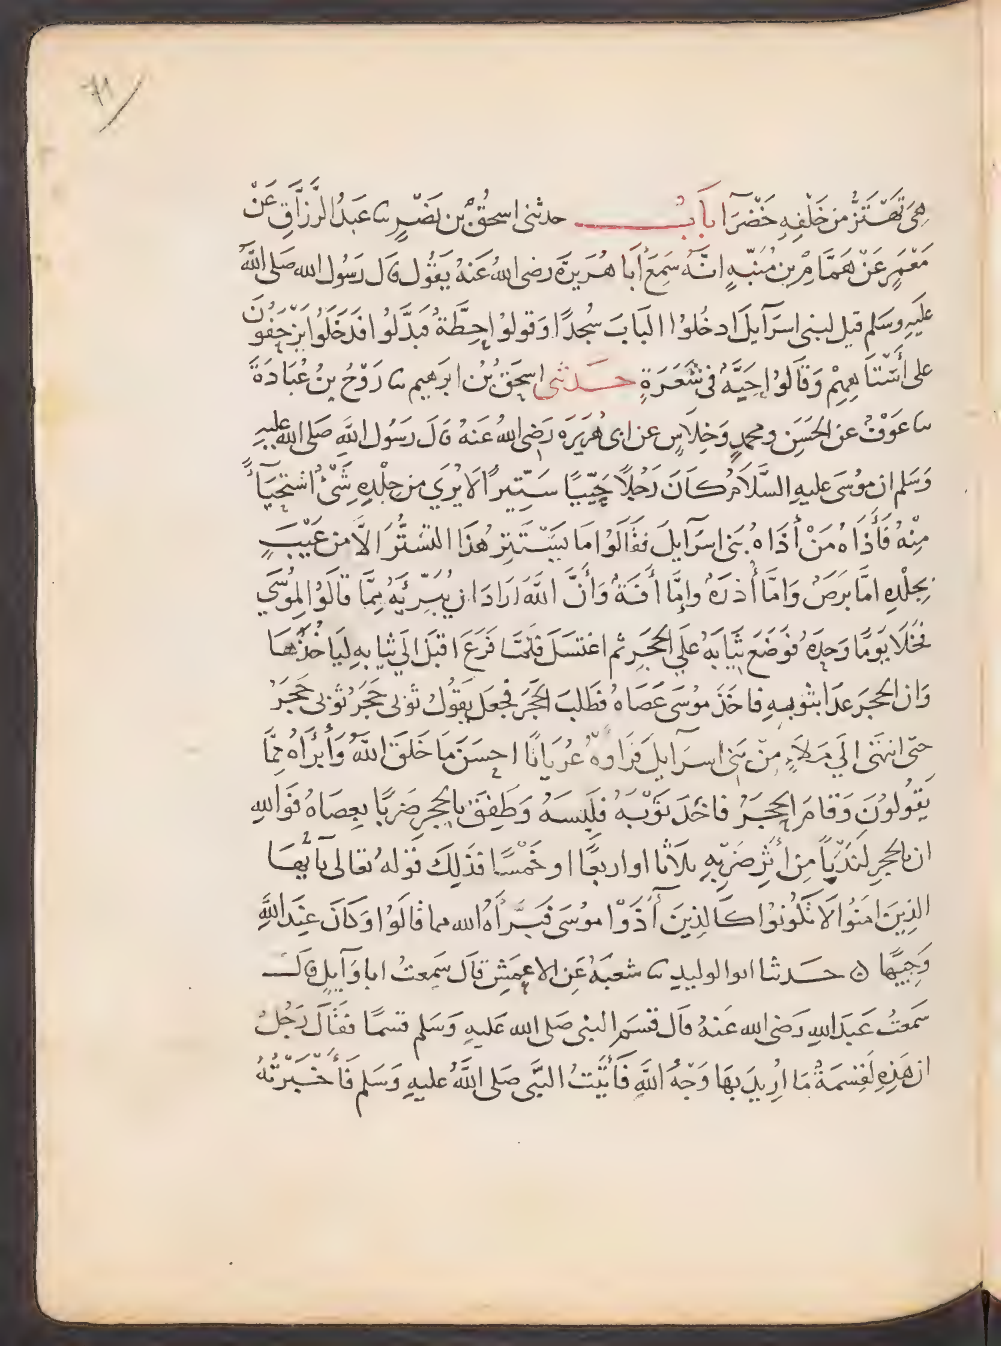 71
هِيَ تَهْتَزُّ من خَلْفِهِ خَضْرَا بَابٌ حدثنى اسحقُ بن نَصْرٍ نا عَبدُ الرَّزَّاقِ عَنْ
مَعْمَرٍ عَنْ هَمَّامِ بن مُنَبِّهٍ انَّهُ سَمِعَ أبَا هُرَيرَةَ رضى اللهُ عَنهُ يَقُول قال رَسُول الله صَلى اللهُ
عَلَيهِ وسَلم قيل لبنى اسرَآيلَ ادخُلوْا البَابَ سُجدًا وَقولوْا حِطَّةٌ فبَدَّلُوا فدَخَلُوْا يَزْحَفُونَ
على أَسْتَاهِهِمْ وَقَالوُا حَبَّةٌ فى شَعَرَةٍ حَدثنى اسحقُ بْنُ ابرهيم نا رَوْحُ بنُ عُبَادَةَ
نا عَوْفٌ عن الحَسَنِ ومحمدٍ وَخِلَاسٍ عن ابى هُرَيرَة رَضى اللهُ عَنهُ قالَ رَسُول اللهِ صَلى الله عليهِ
وَسَلم ان مُوسَى عليهِ السَّلَامُ كانَ رَجُلاً حَيِيًا سَتِيرًا لَا يُرَي من جِلْدِهِ شَيْءٌ اسْتِحْيَاءً
مِنْهُ فَأَذَاهُ مَنْ أذَاهُ بنى اسرآيلَ فقَالوُا مَا يَسْتَتِر هَذَا التسَتُّرَ الاَّ من عَيْبٍ
بِجلْدِهِ امَّا بَرَصٌ وَامَّا أُدْرَةٌ وإمَّا أفَةٌ وَأنَّ اللهَ ارَادَ ان يُبَرِّئَهُ مِمَّا قالوُا لِمُوسَي
فَخَلَا يَوْمًا وَحدَهُ فوَضَعَ ثِيَابَهُ علَى الحَجَرِ ثم اغتسَلَ فلَمَّا فَرَغَ اقبَلَ الَي ثيابهِ لِيَاخُذَهَا
وَان الحجرَ عدَا بثوْبهِ فاخَذَ موُسَى عَصَاهُ فطَلبَ الحَجَرَ فجعَل يَقوُلُ ثوْبى حَجَرُ ثوْبى حَجَرُ
حَتى انتهَى الَي مَلَاءٍ مِنْ بَنى اسرَايلَ فَرَاوهُ عُريَانًا احسَنَ مَا خَلَقَ اللهُ وَأبْرَاهُ مِمَّا
يَقوُلوُنَ وَقامَ الحَجَرُ فاخَذَ ثوْبَهُ فلَبِسَهُ وَطَفِقَ بالحجرِ ضَربًا بعِصَاهُ فوَاللهِ
ان بالحَجرِ لنَدَبًا مِن أثَرِ ضَربِهِ ثلَاثًا او اربعًا او خَمْسًا فذَلِكَ قَوْله تعَالى يأيُّها
الذِينَ امَنوُا لَا تَكوُنوُا كالذِينَ أذَوْا موُسَى فبَرَّأهُ الله مما قالوُا وَكانَ عِندَ اللهِ
وَجِيهًا ه حَدثنا ابوا لوليدِ نا شعبَةُ عَنِ الاعمَشِ قالَ سَمِعتُ ابا وَآيل قال
سَمعتُ عَبدَ اللهِ رَضى الله عَنهُ قالَ قسَمَ النبى صَلى الله عَليهِ وَسَلم قسمًا فقَالَ رَجُلٌ
ان هَذِهِ لَقِسْمَةٌ مَا ارِيدَ بهَا وَجْهُ اللهِ فَأتَيْتُ النبَّى صَلى اللهُ عليهِ وَسَلم فأخْبَرْتُهُ